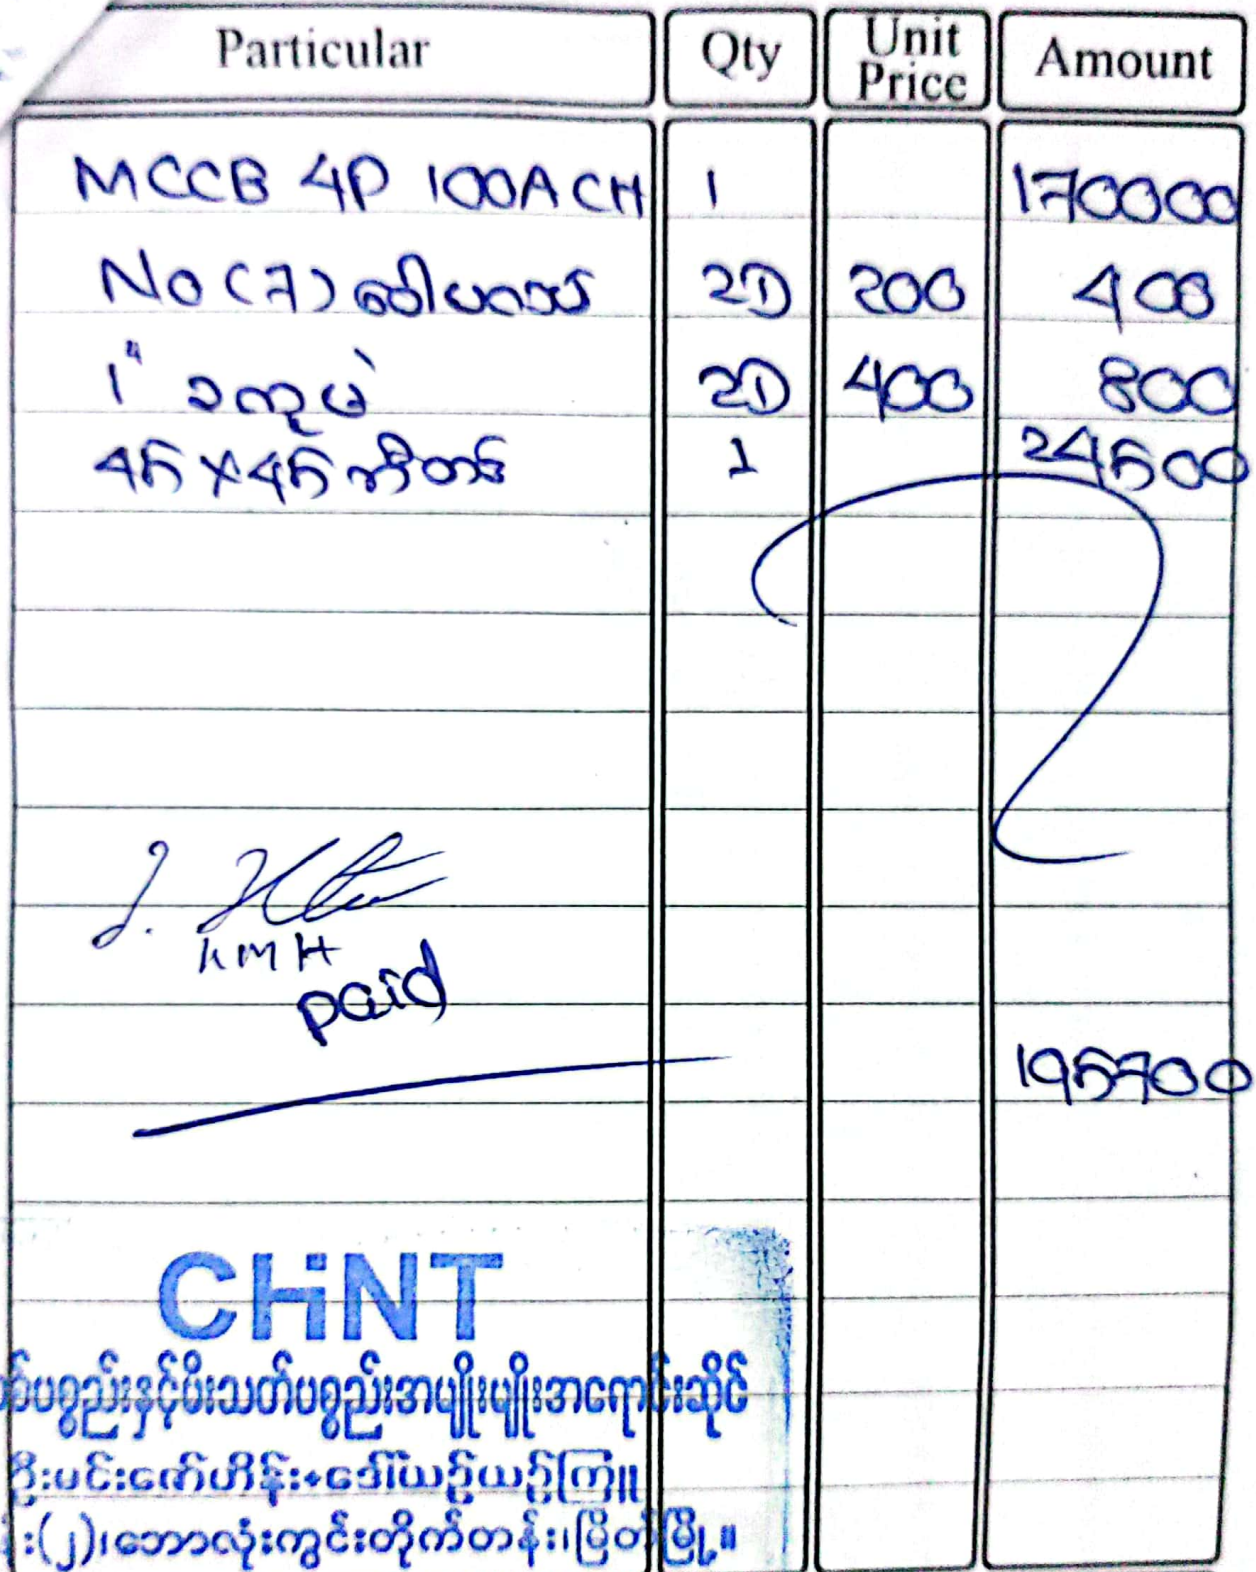 Particular Qty Unit Price Amount
MCCB 4P 100A CH 1 170000
No (7) ဒေါပတ် 2D 200 400
1" ခလုဖဲ 2D 400 800
45 x 45 1 24500
KMH
paid
195700
CHiNT
စ်ပစ္စည်းနှင့်မီးသတ်ပစ္စည်းအမျိုးမျိုးအရောင်းဆိုင်
ဦးမင်းဇော်ဟိန်း+ဒေါ်ယဉ်ယဉ်ကြူ။
န်း(၂)၊ဘောလုံးကွင်းတိုက်တန်း၊မြိတ်မြို့။